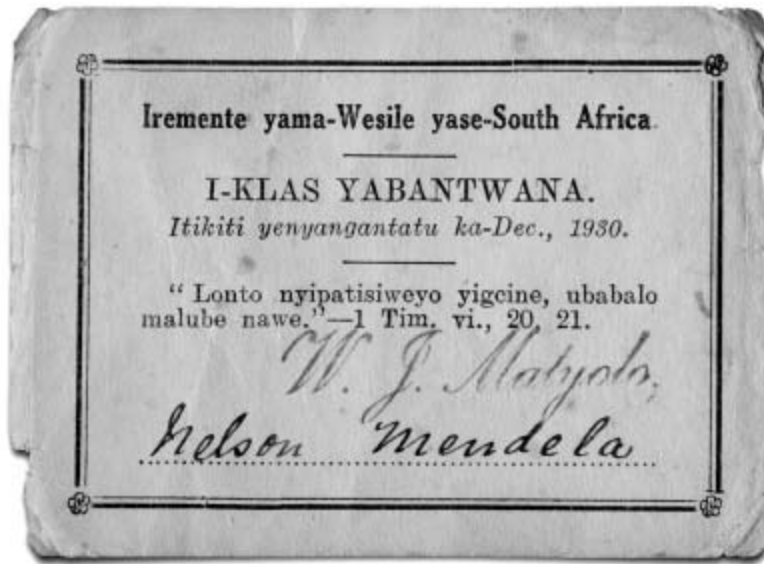 Iremente yama-Wesile yase-South Africa.
I-KLAS YABANTWANA.
Itikiti yenyangantatu ka-Dec., 1930.
“ Lonto nyipatisiweyo yigcine, ubabalo
malube nawe.”—1 Tim. vi., 20, 21.
W. J. Matyolo.
Nelson Mendela